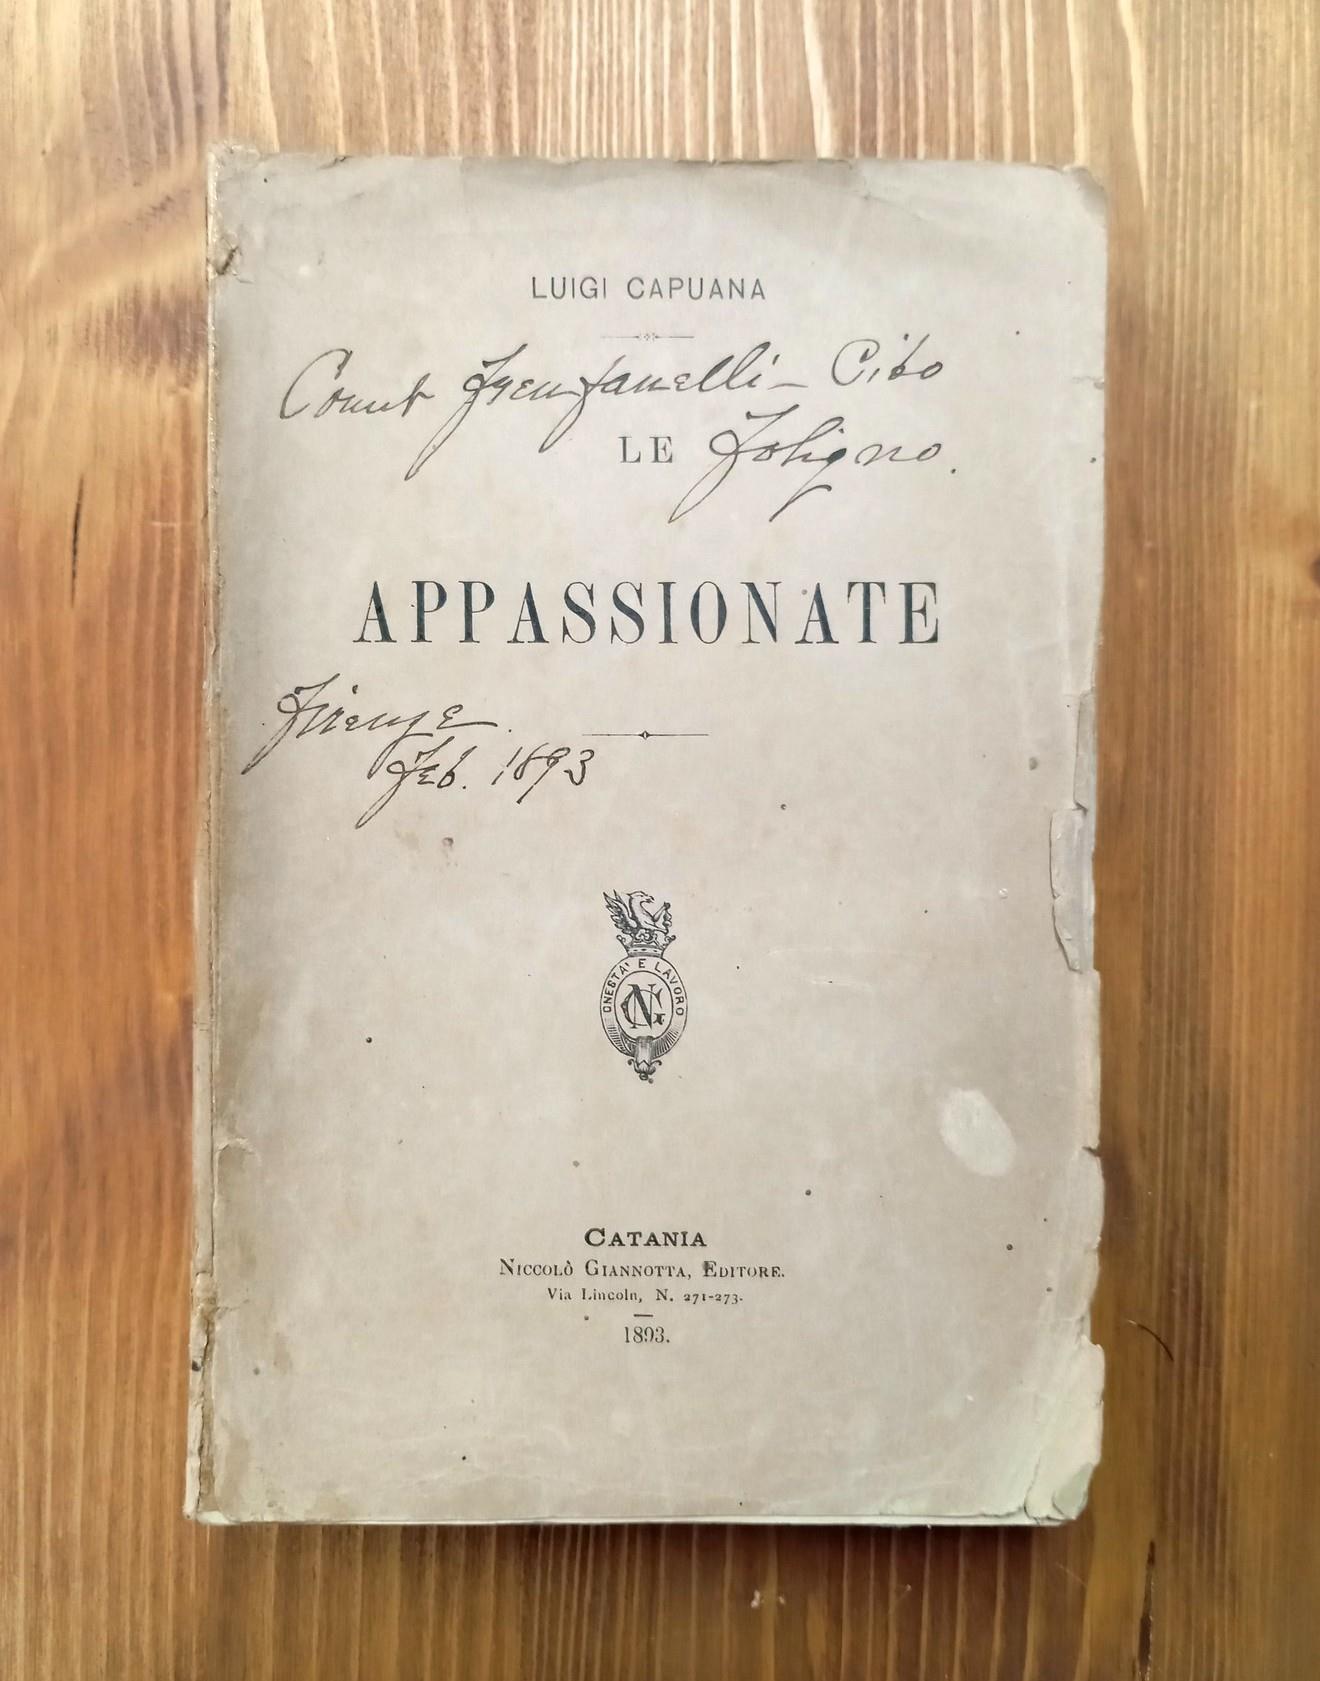 LUIGI CAPUANA
Frenfanelli – Cibo
LE Foligno.
APPASSIONATE
Firenze.
Feb. 1893
ONESTA' E LAVORO
NG
CATANIA
NICCOLÒ GIANNOTTA, EDITORE.
Via Lincoln, N. 271-273.
1893.